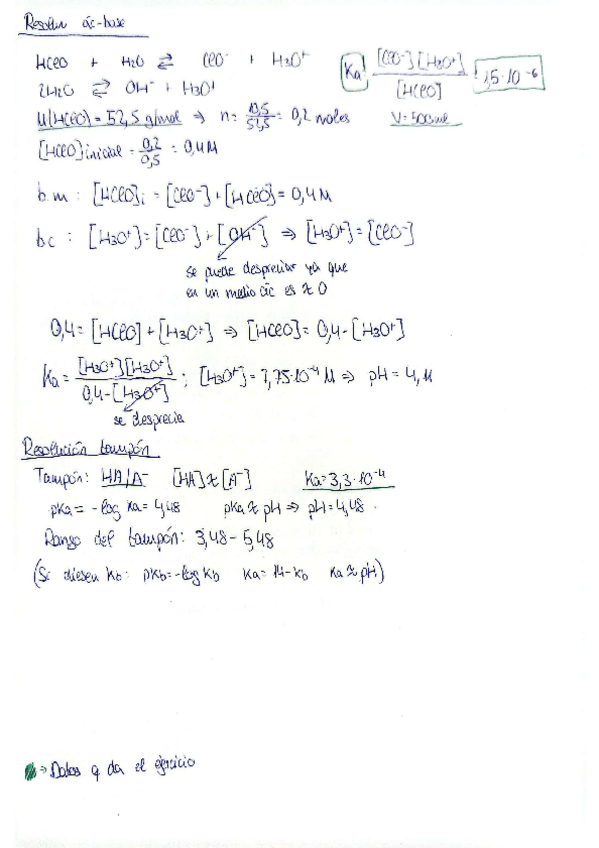 Resolver ác-base
HClO + H2O ⇄ ClO⁻ + H3O⁺
Ka: [ClO⁻][H3O⁺] / [HClO] 1,5·10⁻⁶
2H2O ⇄ OH⁻ + H3O⁺
M(HClO) = 52,5 g/mol → n = 10,5/52,5 = 0,2 moles V = 500 ml
[HClO]inicial = 0,2/0,5 = 0,4 M
b.m : [HClO]i = [ClO⁻] + [HClO] = 0,4 M
b.c : [H3O⁺] = [ClO⁻] + [OH⁻] ⇒ [H3O⁺] = [ClO⁻]
se puede despreciar ya que
en un medio ác es ≈ 0
0,4 = [HClO] + [H3O⁺] ⇒ [HClO] = 0,4 - [H3O⁺]
Ka = [H3O⁺][H3O⁺] / 0,4 - [H3O⁺] ; [H3O⁺] = 7,75·10⁻⁴ M ⇒ pH = 4,11
se desprecia
Resolución tampón
Tampón: HA/A⁻ [HA] ≈ [A⁻] Ka = 3,3·10⁻⁴
pKa = -log Ka = 4,48 pKa ≈ pH ⇒ pH = 4,48
Rango del tampón: 3,48 - 5,48
(Si diesen Kb: pKb = -log Kb Ka = 14 - Kb Ka ≈ pH)
→ Datos q da el ejercicio